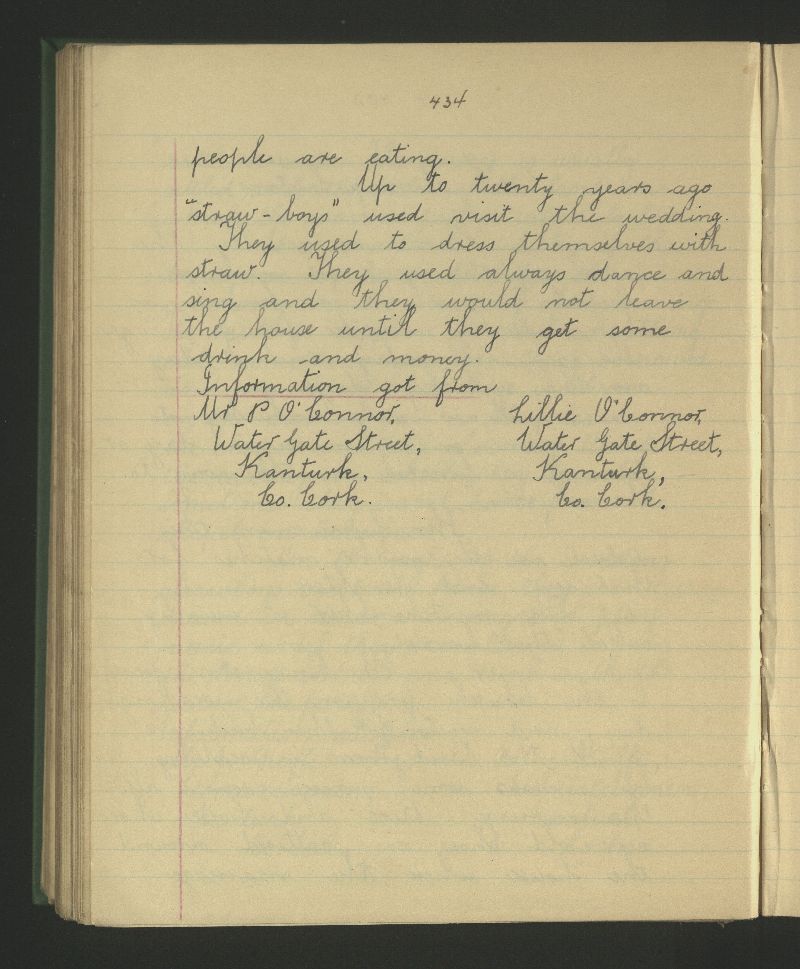 434
people are eating.
Up to twenty years ago
"straw-boys" used visit the wedding.
They used to dress themselves with
straw. They used always dance and
sing and they would not leave
the house until they get some
drink and money.
Information got from
Mr P O'Connor, Lillie O'Connor,
Water Gate Street, Water Gate Street,
Kanturk, Kanturk,
Co. Cork. Co. Cork.